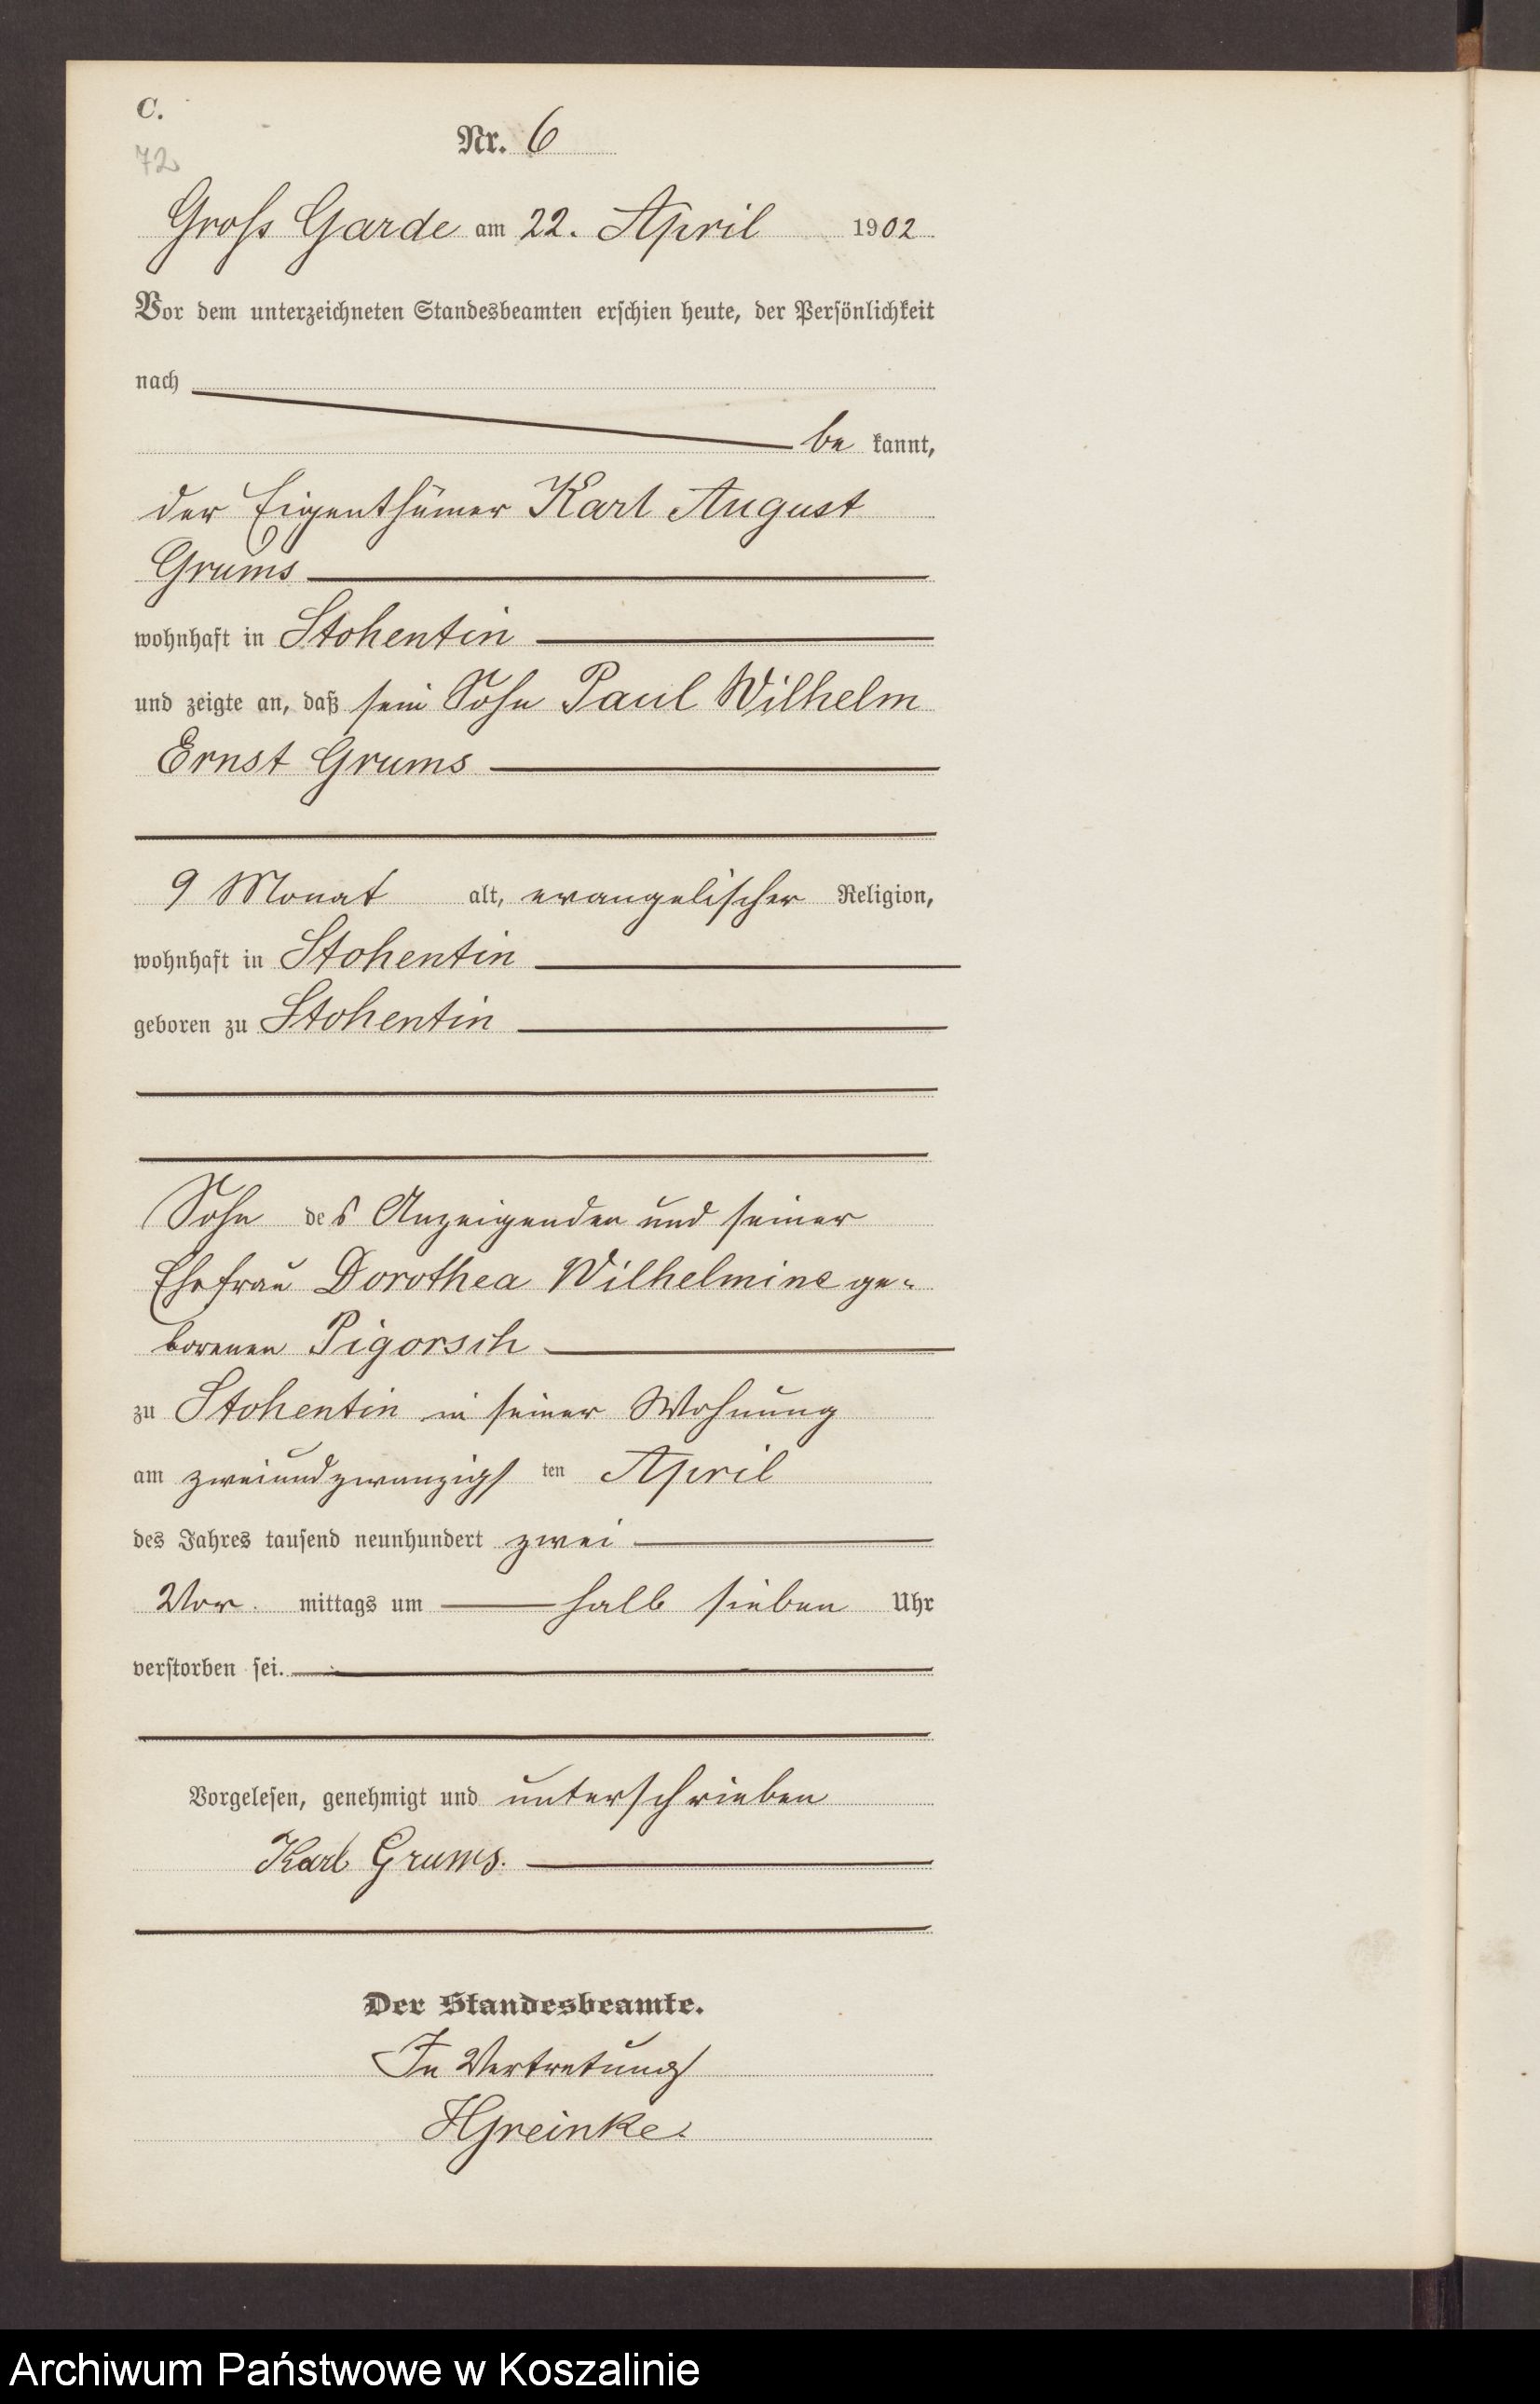 C.
72
Nr. 6
Gross Garde am 22. April 1902
Vor dem unterzeichneten Standesbeamten erschien heute, der Persönlichkeit
nach
be kannt,
der Eigenthümer Karl August
Grums
wohnhaft in Stohentin
und zeigte an, daß sein Sohn Paul Wilhelm
Ernst Grums
9 Monat alt, evangelischer Religion,
wohnhaft in Stohentin
geboren zu Stohentin
Sohn des Anzeigenden und seiner
Ehefrau Dorothea Wilhelmine ge-
borenen Pigorsch
zu Stohentin in seiner Wohnung
am zweiundzwanzigs ten April
des Jahres tausend neunhundert zwei
Vor. mittags um halb sieben Uhr
verstorben sei.
Vorgelesen, genehmigt und unterschrieben
Karl Grums.
Der Standesbeamte.
In Vertretung
HGreinke.
Archiwum Państwowe w Koszalinie